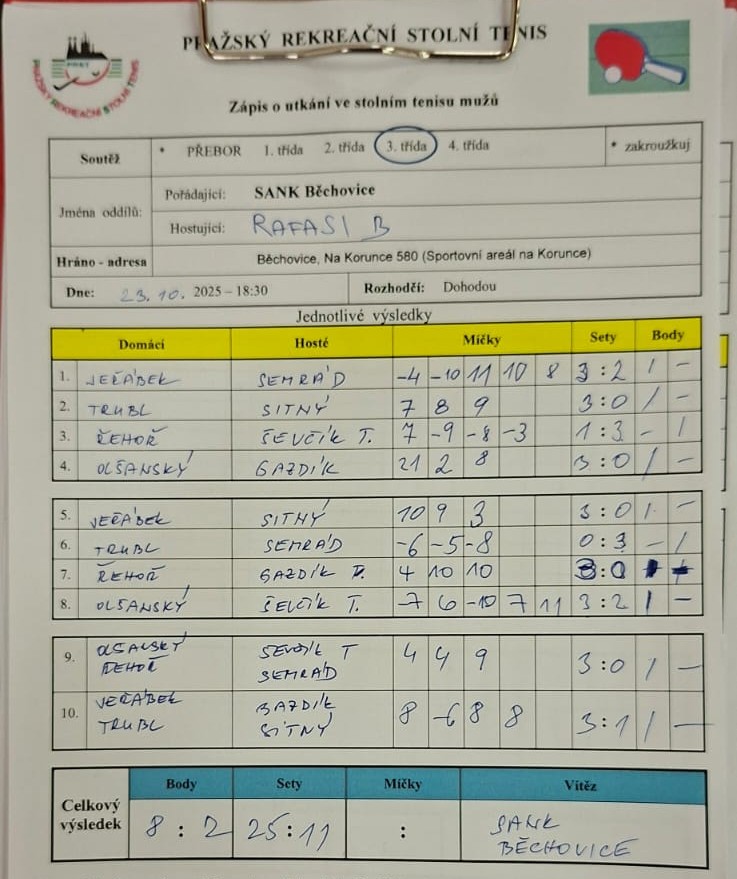 PRAŽSKÝ REKREAČNÍ STOLNÍ TENIS
PRST
PRAŽSKÝ REKREAČNÍ STOLNÍ TENIS
Zápis o utkání ve stolním tenisu mužů
Soutěž * PŘEBOR 1. třída 2. třída 3. třída 4. třída * zakroužkuj
Jména oddílů: Pořádající: SANK Běchovice
Hostující: RAFASI B
Hráno - adresa Běchovice, Na Korunce 580 (Sportovní areál na Korunce)
Dne: 23. 10. 2025 – 18:30 Rozhodčí: Dohodou
Jednotlivé výsledky
Domácí Hosté Míčky Sety Body
1. JEŘÁBEK SEMRÁD -4 -10 11 10 8 3 : 2 1 -
2. TRUBL SITNÝ 7 8 9 3 : 0 1 -
3. ŘEHOŘ ŠEVČÍK T. 7 -9 -8 -3 1 : 3 - 1
4. OLŠANSKÝ GAZDÍK 21 2 8 3 : 0 1 -
5. JEŘÁBEK SITNÝ 10 9 3 3 : 0 1 -
6. TRUBL SEMRÁD -6 -5 -8 0 : 3 - 1
7. ŘEHOŘ GAZDÍK 4 10 10 3 : 0 1 -
8. OLŠANSKÝ ŠEVČÍK T. -7 6 -10 7 11 3 : 2 1 -
9. OLŠANSKÝ ŠEVČÍK T 4 4 9 3 : 0 1 -
ŘEHOŘ SEMRÁD
10. JEŘÁBEK GAZDÍK 8 -6 8 8 3 : 1 1 -
TRUBL SITNÝ
Celkový výsledek Body Sety Míčky Vítěz
8 : 2 25 : 11 : SANK
BĚCHOVICE